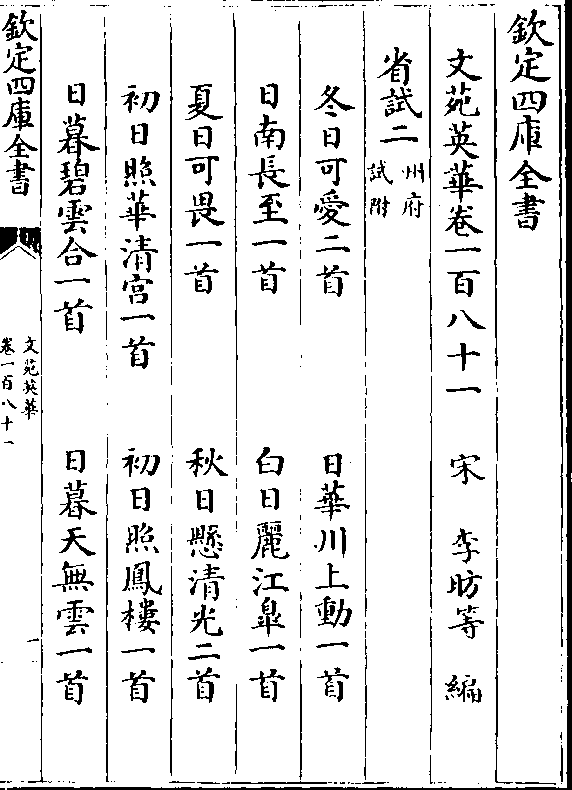 欽定四庫全書
文苑英華卷一百八十一 宋 李昉等 編
省試二 州府試附
冬日可愛二首 日華川上動一首
日南長至一首 白日麗江臯一首
夏日可畏一首 秋日懸清光二首
初日照華清宮一首 初日照鳳樓一首
日暮碧雲合一首 日暮天無雲一首
欽定四庫全書
文苑英華
卷一百八十一
一